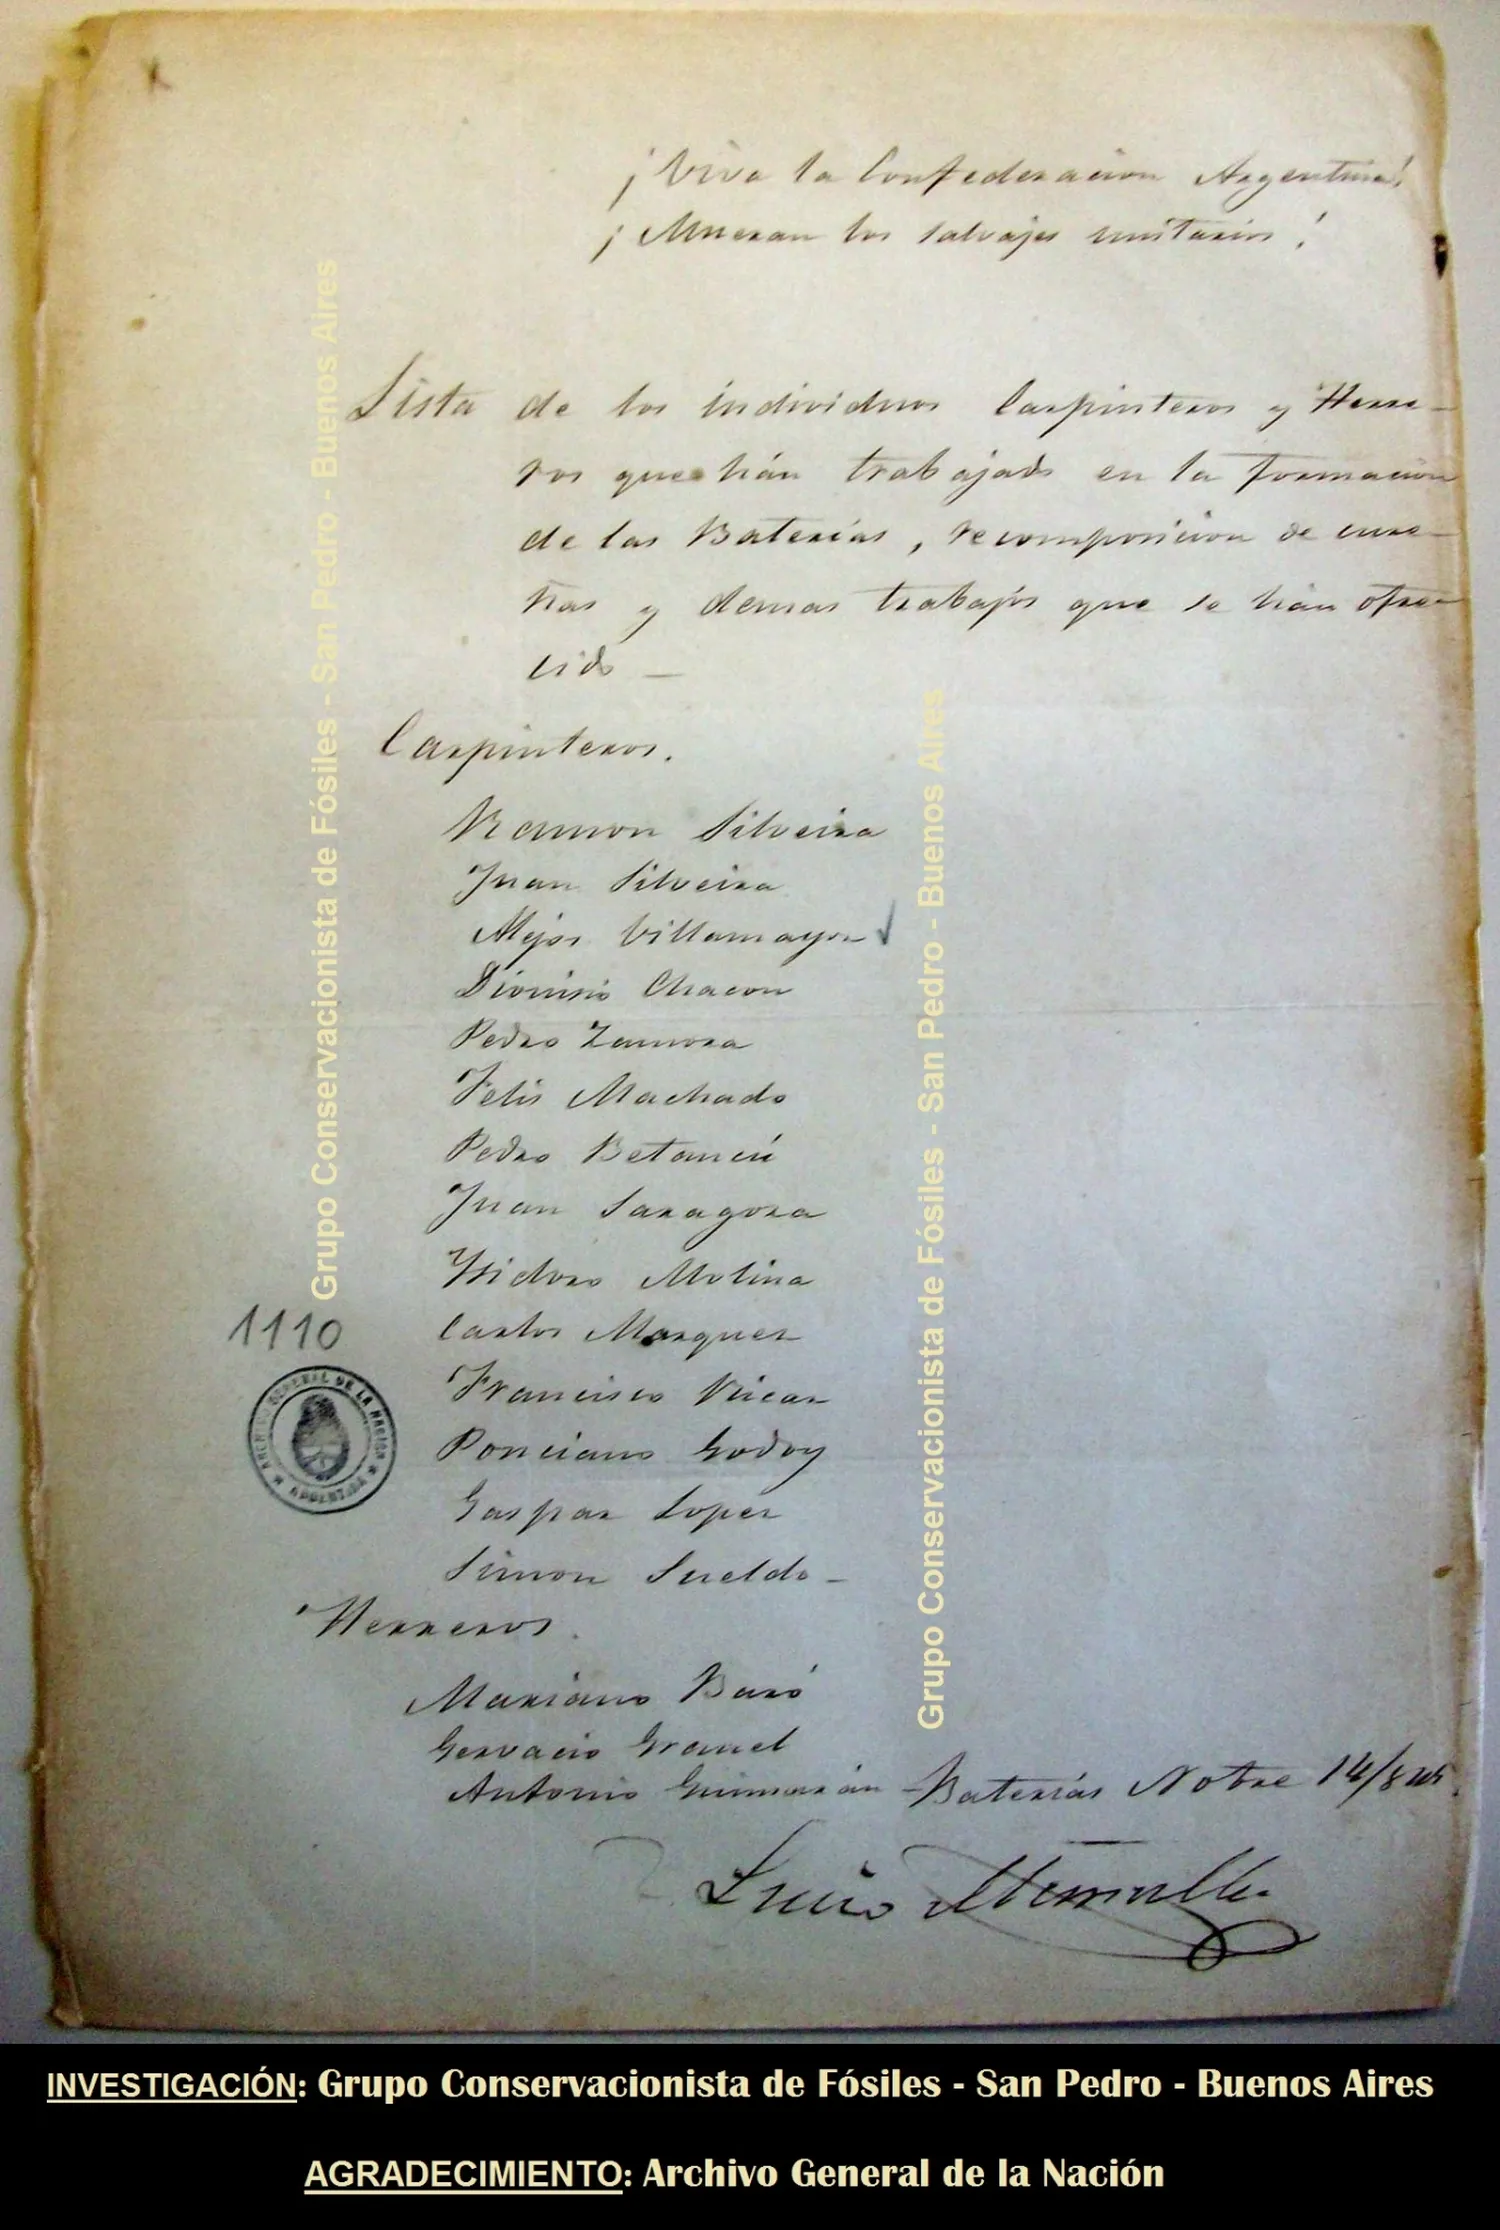 ¡Viva la Confederacion Argentina!
¡Mueran los salvajes unitarios!
Lista de los individuos Carpinteros y Herre-
ros que hán trabajado en la formacion
de las Baterías, recomposicion de cure-
ñas y demas trabajos que se hán ofre-
cido —
Carpinteros.
Ramon Silveira
Juan Silveira
Alejos Villamayor
Dionisio Chacon
Pedro Zamora
Felis Machado
Pedro Betancú
Juan Saragoza
Ysidoro Molina
Carlos Marquez
Francisco
Ponciano Godoy
Gaspar Lopez
Simon Sueldo —
Herreros.
Mariano Baró
Gervacio Granel
Antonio Guimarán — Baterías Nobre 14/845
Lucio Mansilla
1110
ARCHIVO GENERAL DE LA NACION
ARGENTINA
Grupo Conservacionista de Fósiles - San Pedro - Buenos Aires
Grupo Conservacionista de Fósiles - San Pedro - Buenos Aires
INVESTIGACIÓN: Grupo Conservacionista de Fósiles - San Pedro - Buenos Aires
AGRADECIMIENTO: Archivo General de la Nación